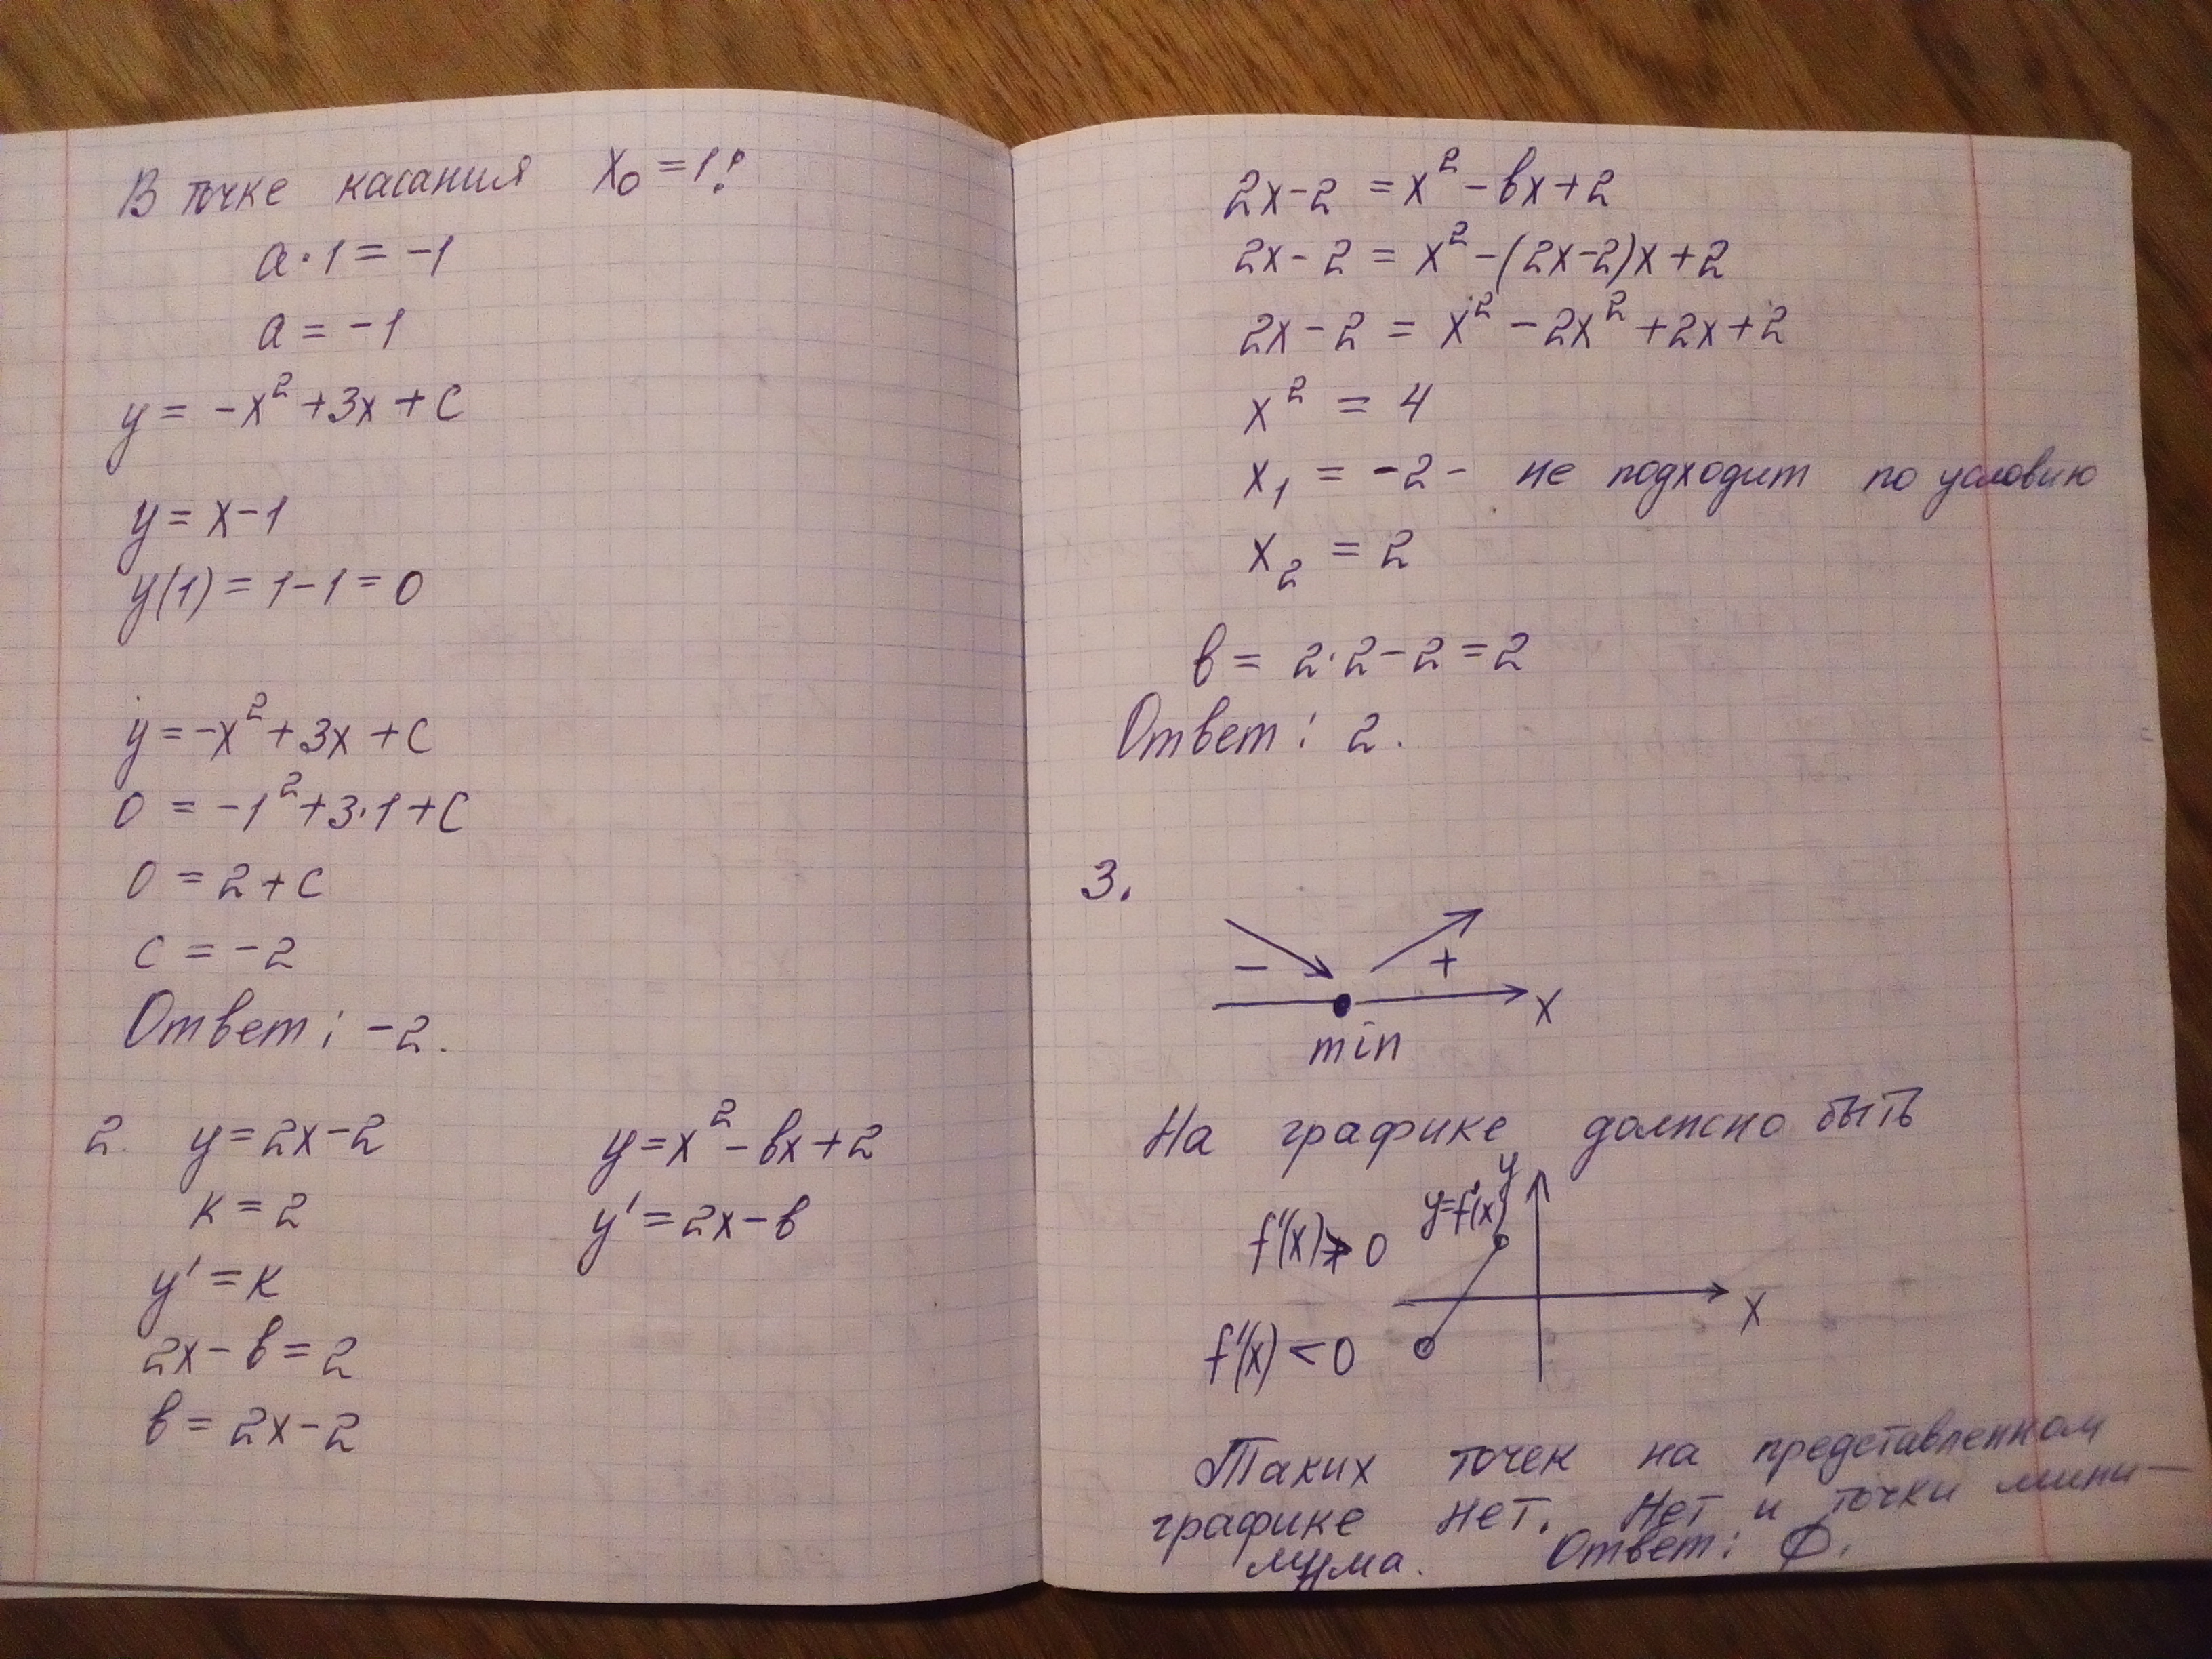 В точке касания x₀ = 1:
a·1 = -1
a = -1
y = -x² + 3x + c
y = x-1
y(1) = 1-1 = 0
y = -x² + 3x + c
0 = -1² + 3·1 + c
0 = 2 + c
c = -2
Ответ: -2.
2. y = 2x-2
k = 2
y' = k
2x - в = 2
в = 2x-2
y = x² - вx + 2
y' = 2x - в
2x-2 = x² - вx + 2
2x-2 = x² - (2x-2)x + 2
2x-2 = x² - 2x² + 2x + 2
x² = 4
x₁ = -2 - не подходит по условию
x₂ = 2
в = 2·2-2 = 2
Ответ: 2.
3.
- +
x
min
На графике должно быть
y
y=f'(x)
f'(x) > 0
x
f'(x) < 0
Таких точек на представленном
графике нет. Нет и точки мини-
мума. Ответ: Ø.